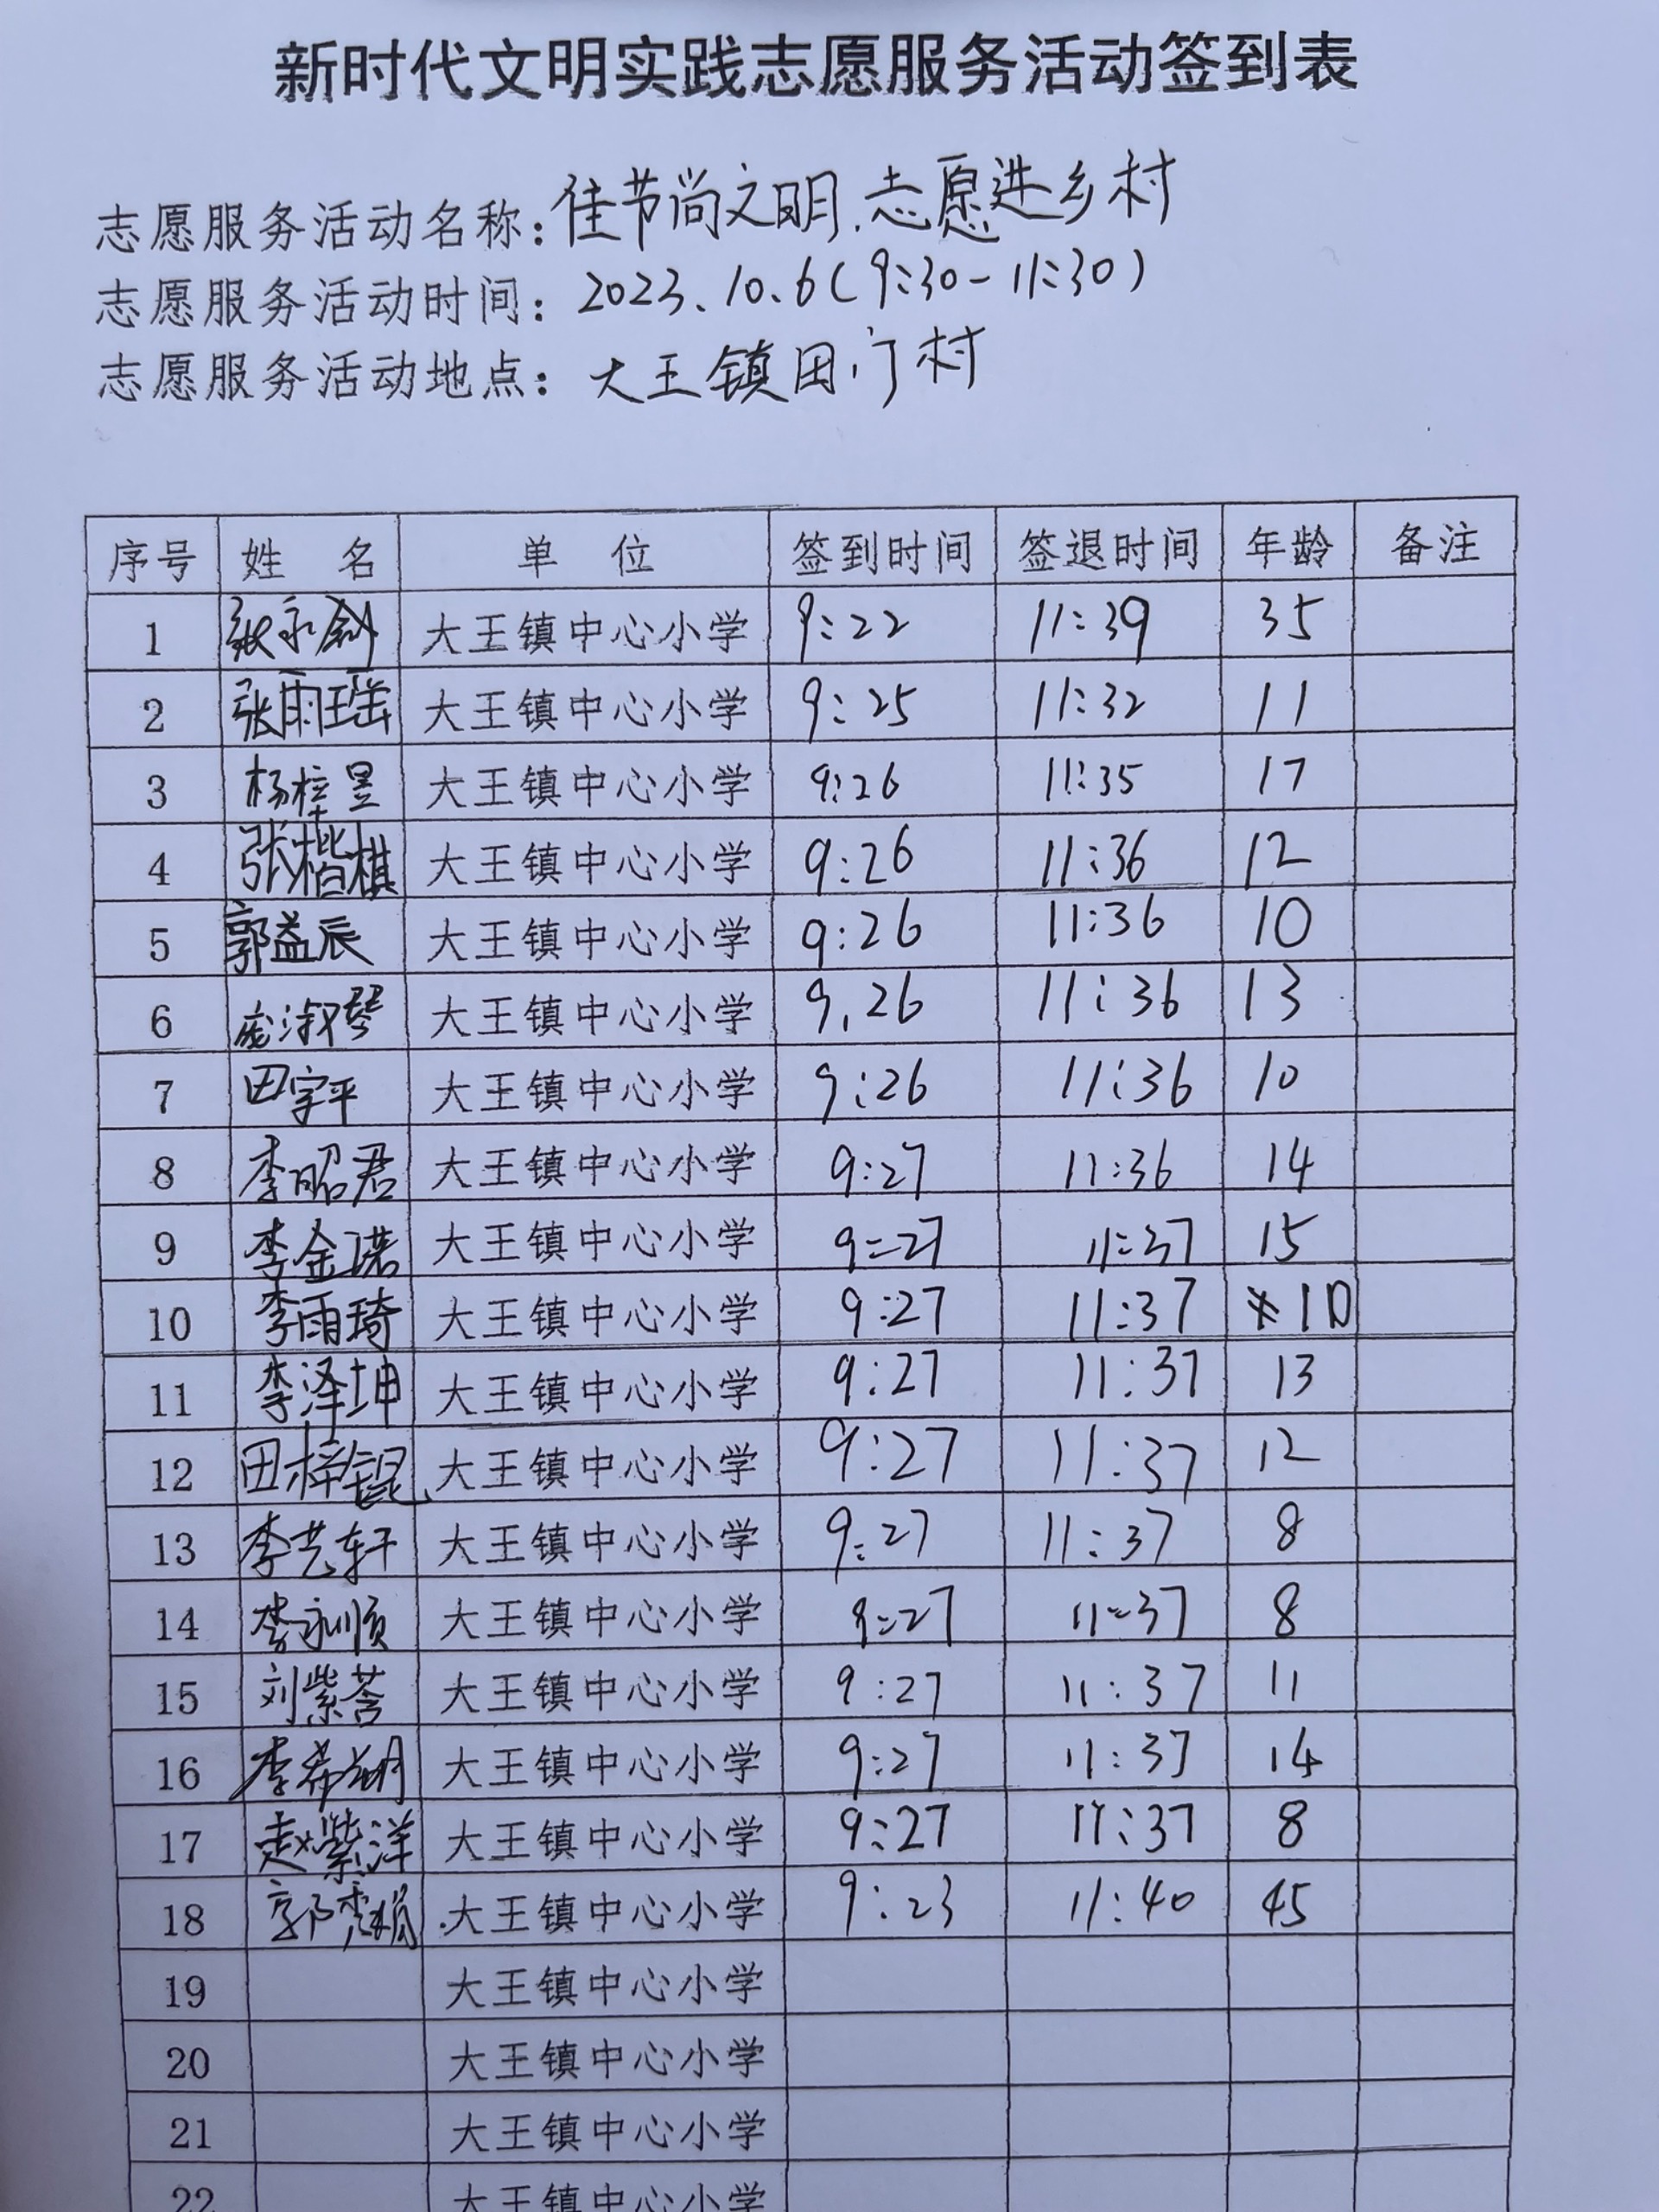 新时代文明实践志愿服务活动签到表
志愿服务活动名称:佳节尚文明.志愿进乡村
志愿服务活动时间: 2023.10.6(9:30-11:30)
志愿服务活动地点: 大王镇田门村
序号 姓 名 单 位 签到时间 签退时间 年龄 备注
1 张永剑 大王镇中心小学 9:22 11:39 35
2 张雨瑶 大王镇中心小学 9:25 11:32 11
3 杨梓昱 大王镇中心小学 9:26 11:35 17
4 张楷棋 大王镇中心小学 9:26 11:36 12
5 郭益辰 大王镇中心小学 9:26 11:36 10
6 庞淑琴 大王镇中心小学 9.26 11:36 13
7 田宇平 大王镇中心小学 9:26 11:36 10
8 李昭君 大王镇中心小学 9:27 11:36 14
9 李金珺 大王镇中心小学 9:27 11:37 15
10 李雨琦 大王镇中心小学 9:27 11:37 10
11 李泽坤 大王镇中心小学 9:27 11:37 13
12 田梓锟 大王镇中心小学 9:27 11:37 12
13 李艺轩 大王镇中心小学 9:27 11:37 8
14 李永顺 大王镇中心小学 9:27 11:37 8
15 刘紫菡 大王镇中心小学 9:27 11:37 11
16 大王镇中心小学 9:27 11:37 14
17 赵紫洋 大王镇中心小学 9:27 11:37 8
18 大王镇中心小学 9:23 11:40 45
19 大王镇中心小学
20 大王镇中心小学
21 大王镇中心小学
22 大王镇中心小学